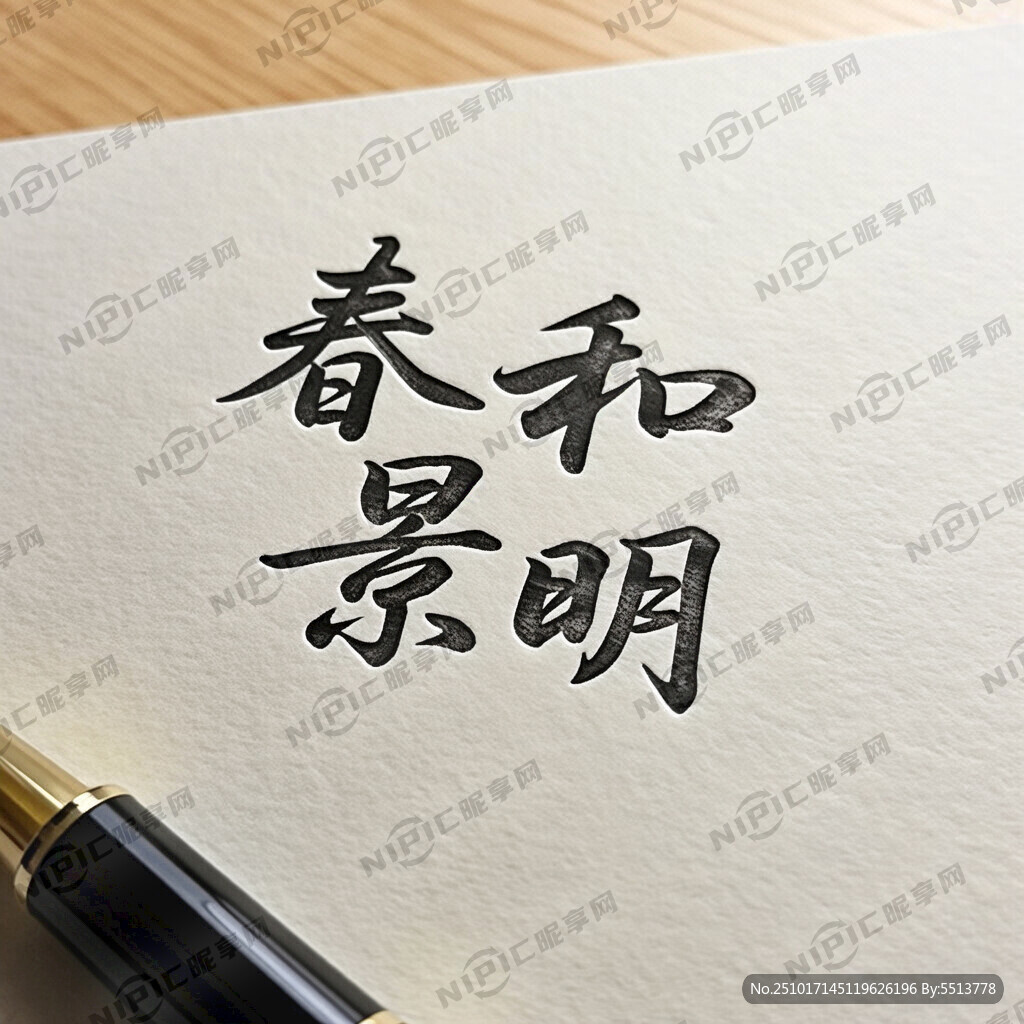 春和
景明
NIPIC昵享网
No.251017145119626196 By:5513778